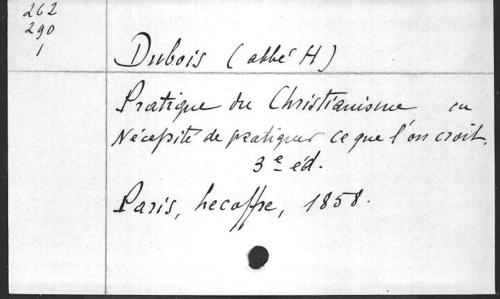 262
290
1
Dubois (abbé H)
Pratique du Christianisme ou
Nécessité de pratiquer ce que l'on croit.
3e éd.
Paris, Lecoffre, 1858.